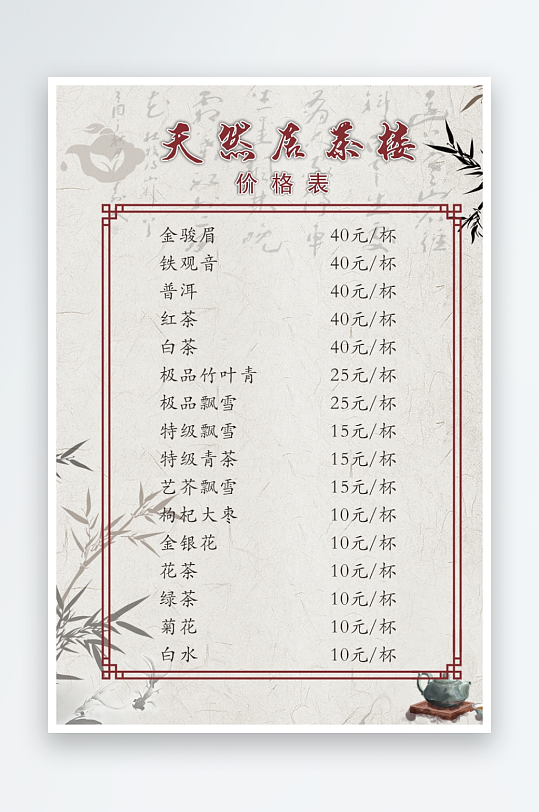 天然居茶楼
价格表
金骏眉 40元/杯
铁观音 40元/杯
普洱 40元/杯
红茶 40元/杯
白茶 40元/杯
极品竹叶青 25元/杯
极品飘雪 25元/杯
特级飘雪 15元/杯
特级青茶 15元/杯
艺芥飘雪 15元/杯
枸杞大枣 10元/杯
金银花 10元/杯
花茶 10元/杯
绿茶 10元/杯
菊花 10元/杯
白水 10元/杯